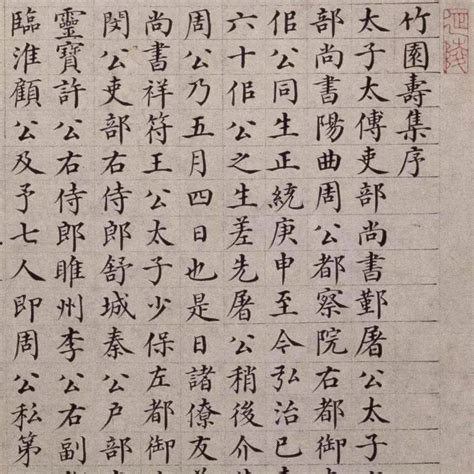 竹園壽集序
太子太傅吏部尚書鄞屠公太子
部尚書陽曲周公都察院右都御
佀公同生正統庚申至今弘治己
六十佀公之生差先屠公稍後介
周公乃五月四日也是日諸僚友
尚書祥符王公太子少保左都御
閔公吏部右侍郎舒城秦公戶部
靈寶許公右侍郎睢州李公右副
臨淮顧公及予七人即周公私第